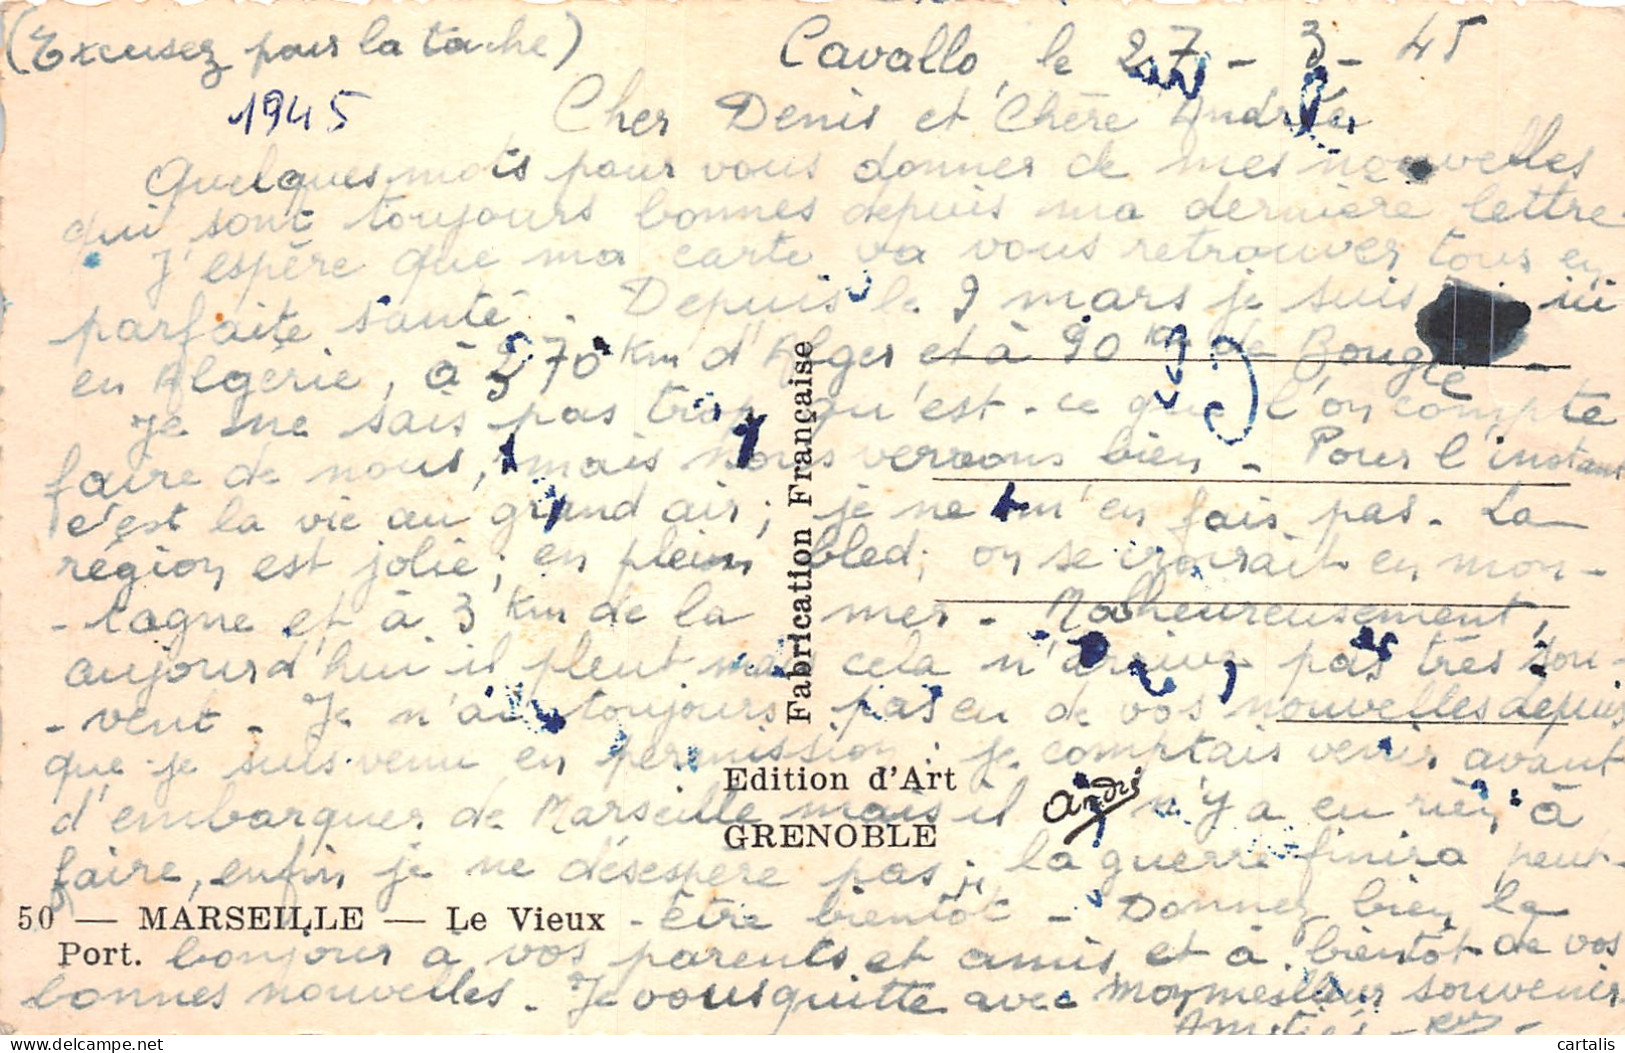 (Excusez pour la tache)
Cavallo, le 27-3-45
1945
Cher Denis et Chère Andrée
Quelques mots pour vous donner de mes nouvelles
qui sont toujours bonnes depuis ma dernière lettre.
J'espère que ma carte va vous retrouver tous en
parfaite santé. Depuis le 9 mars je suis ici
en Algérie, à 270 Km d'Alger et à 90 Km de Bougie -
Je ne sais pas trop qu'est-ce que l'on compte
faire de nous, mais nous verrons bien - Pour l'instant
c'est la vie au grand air; je ne m'en fais pas. La
région est jolie; en plein bled; on se croirait en mon-
-tagne et à 3 Km de la mer. Malheureusement,
aujourd'hui il pleut mais cela n'arrive pas très sou-
-vent - Je n'ai toujours pas eu de vos nouvelles depuis
que je suis venu en permission; je comptais venir avant
d'embarquer de Marseille mais il n'y a eu rien à
faire, enfin je ne désespère pas, la guerre finira peut-
-être bientôt - Donnez bien le
bonjour à vos parents et amis et à bientôt de vos
bonnes nouvelles. Je vous quitte avec mon meilleur souvenir
Amitiés -
Fabrication Française
Edition d'Art
andré
GRENOBLE
50 — MARSEILLE — Le Vieux
Port.
cartalis